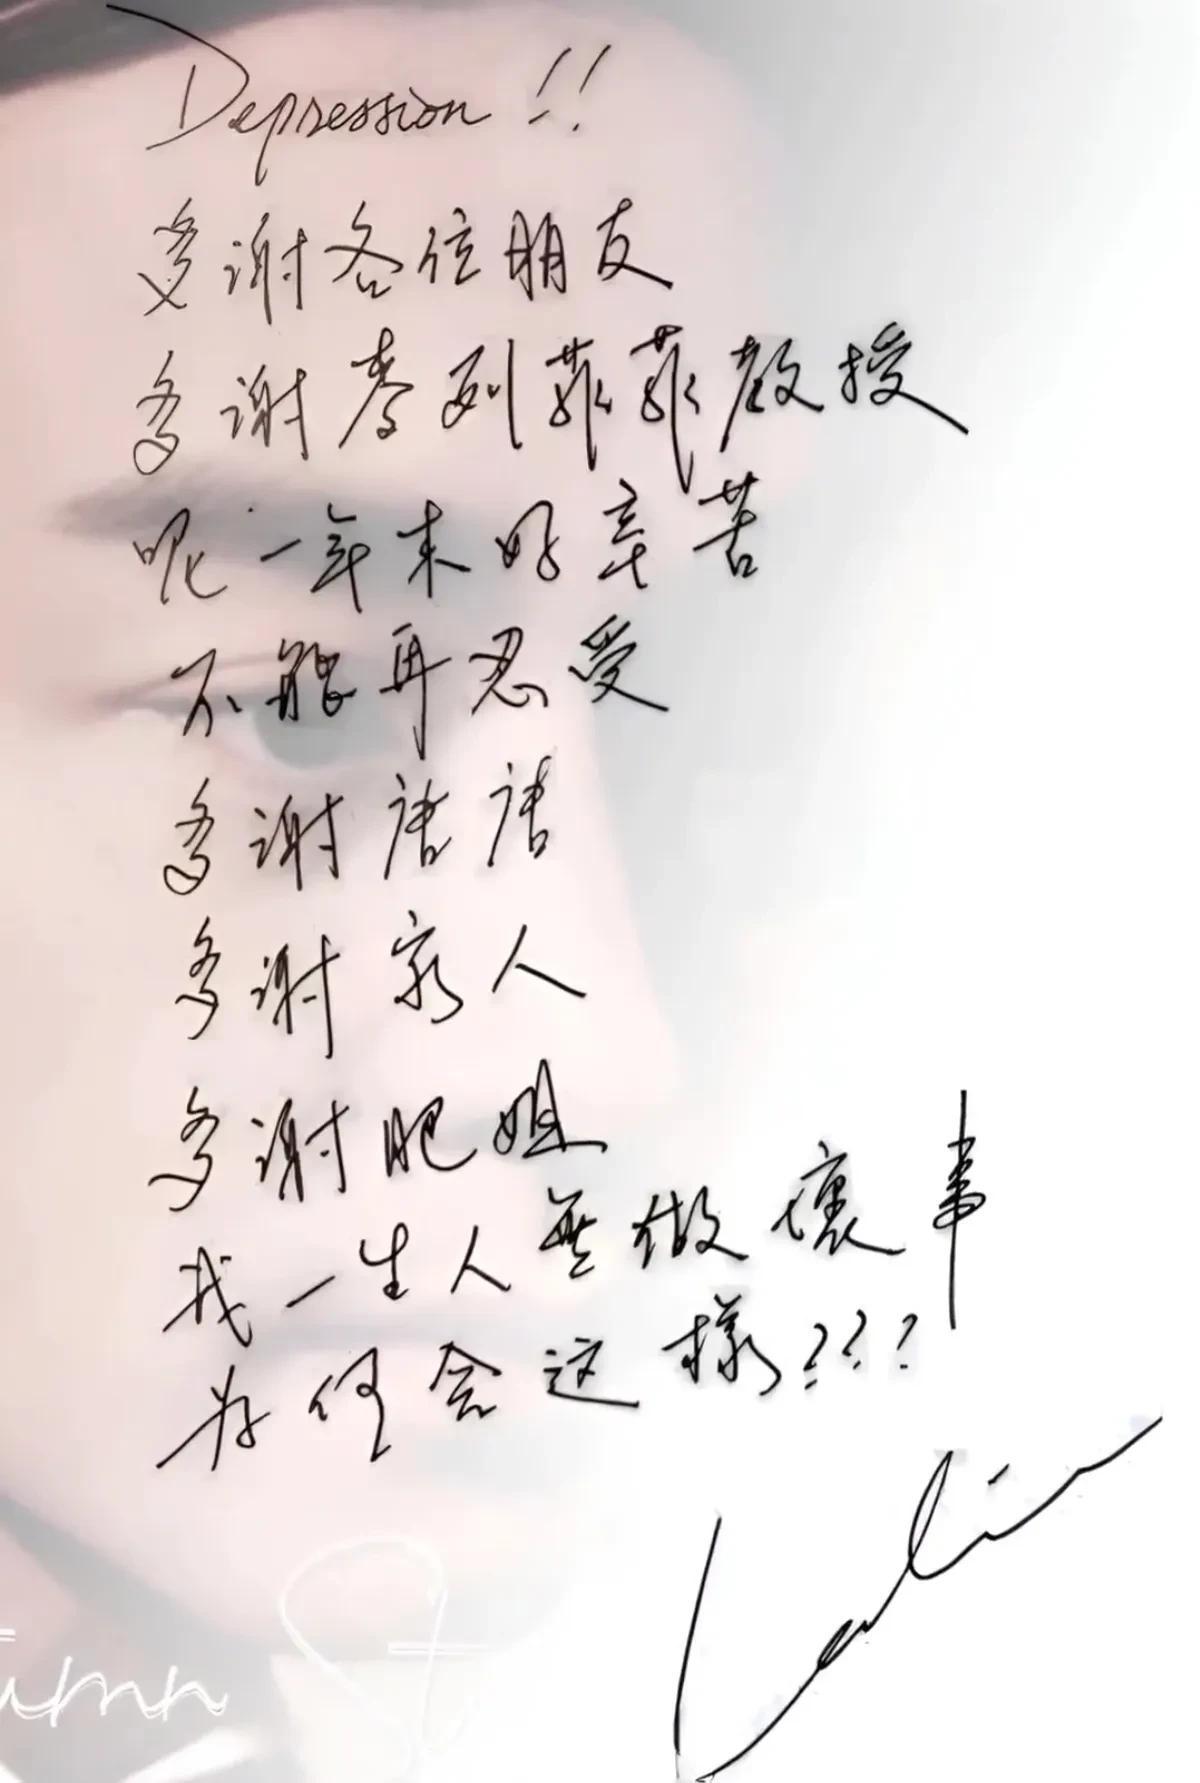 Depression !!
多謝各位朋友
多謝麥列菲菲教授
呢一年來好辛苦
不能再忍受
多謝唐唐
多謝家人
多謝肥姐
我一生人無做壞事
为何会这樣???
Leslie